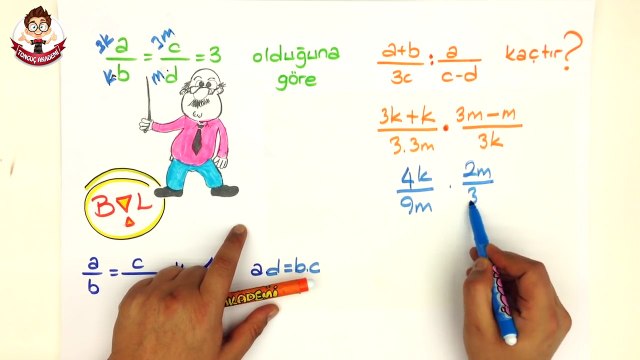 TONGUÇ AKADEMİ
3k a/b k = 3m c/d m = 3 olduğuna göre
(a+b)/3c : a/(c-d) kaçtır?
(3k+k)/3.3m . (3m-m)/3k
4k/9m . 2m/3
BÖL
a/b = c/
ad=b.c
AKADEMİ